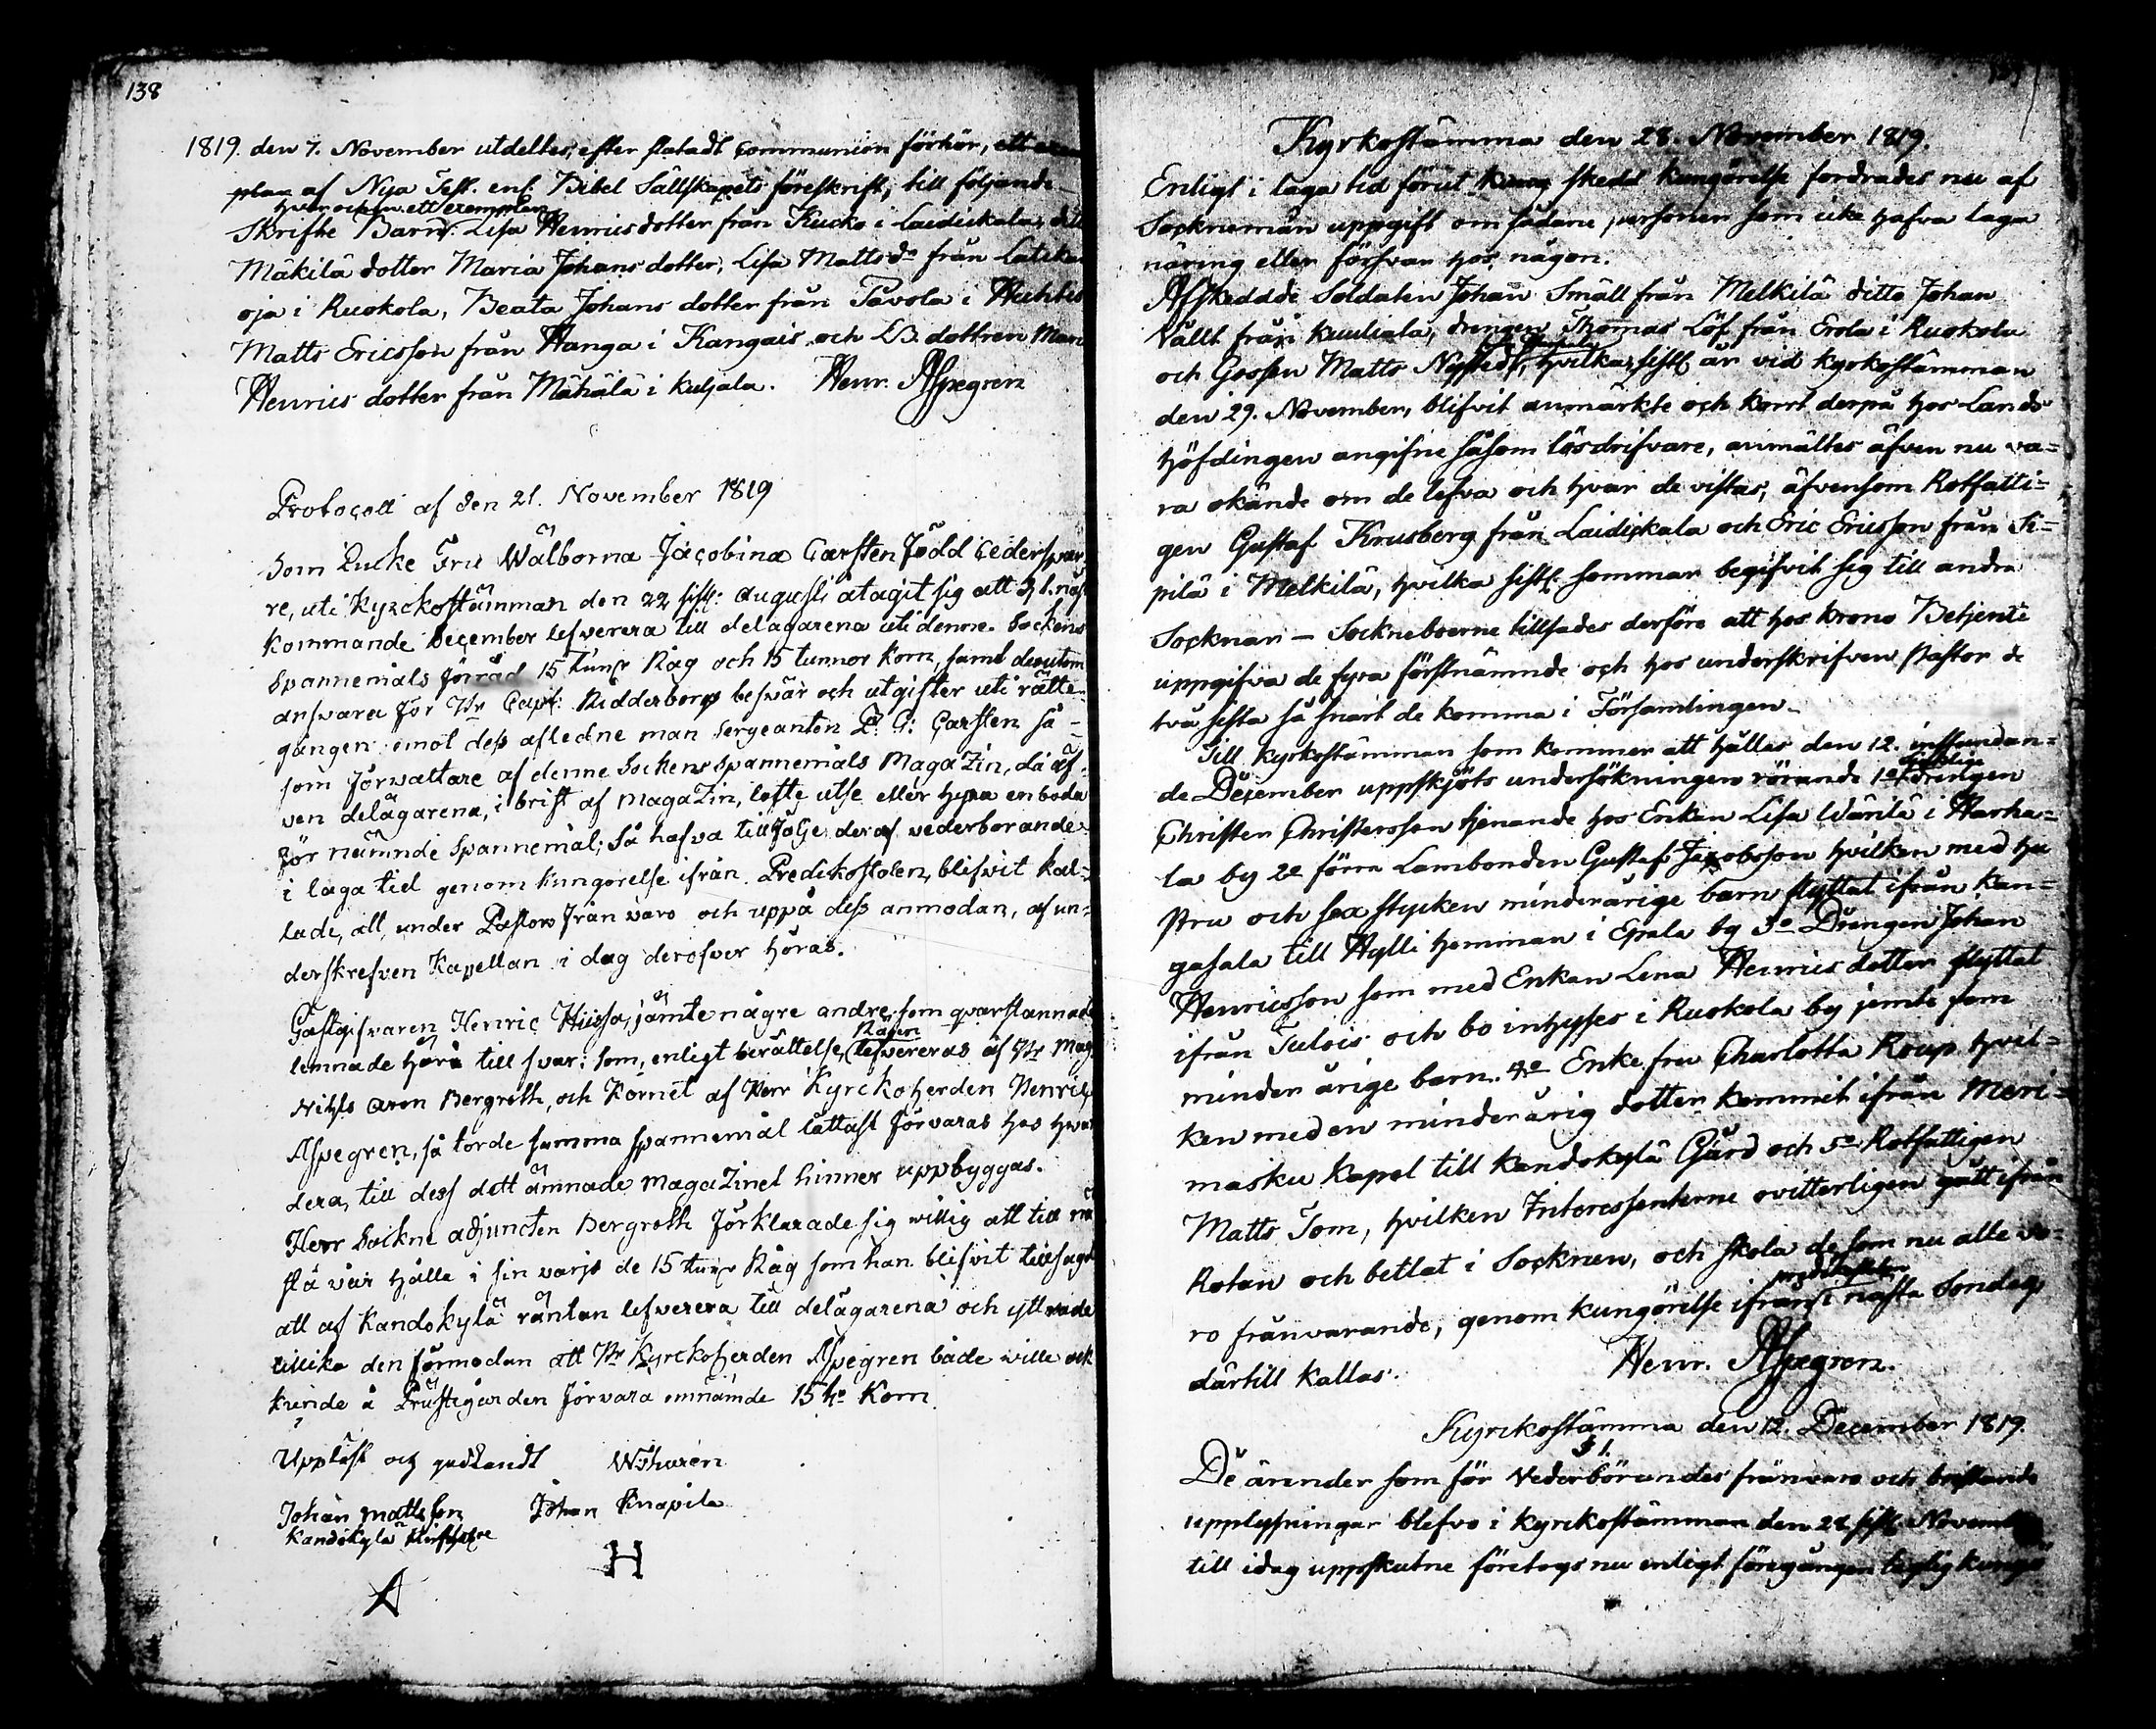 138
1819. den 7. November utdeltes, efter slutadt Communion förhör, ett
plar af Nya Test. enl. Bibel Sällskapets föreskrift, till följande
hvar och en ett exemplar
Skrifte Barn: Lisa Henrics dotter från Kucko i Laidickala,
Mäkilä dotter Maria Johans dotter, Lisa Matts dr från
oja i Ruokola, Beata Johans dotter från Tavola i
Matts Ericsson från Hanga i Kangais och LB. dottren
Henrics dotter från Mähälä i Kuljala. Henr. Aspegren
Protocoll af den 21. November 1819
Som Encke Fru Wälborna Jacobina Carsten född
re, uti Kyrckostämman den 22 sistl: augusti åtagit sig att
kommande December lefverera till delägarena uti denne Sockens
Spannemåls förråd 15 tunr Råg och 15 tunnor Korn, samt desutom
ansvara för Hr Capt: Ridderborgs besvär och utgifter uti rätte-
gången emot dess afledne man Sergeanten P. G: Carsten så-
som förwaltare af denne Sockens Spannemåls MagaZin, då äf-
ven delägarena, i brist af MagaZin, lofte utse eller hyra en boda
för nämnde Spannemål; Så hafva till följe deraf vederborande
i laga tid genom kungorelse ifrån Predikostolen, blifwit kal-
lade, att, under Pastors från varo och uppå dess anmodan, af un-
derskrefven Kapellan i dag deröfver höras.
Gästgifvaren Henric Hiissa, jämte någre andre som qvarstannade
Rågen
lemnade härå till svar: som, enligt berättelse, lefvereras af Hr
Nihls Aron Bergroth, och Kornet af Herr Kyrckoherden
Aspegren, så torde samma spannemål lättast förvaras hos
dera, till dess dett ämnade MagaZinet hinner uppbyggas.
Herr Sockne adjuncten Bergroth förklarade sig willig att till
sta vår hålla i sin varjo de 15 tunr Råg som han blifvit
att af Kandokylä räntan lefverera till delägarena och yttrade
tillika den förmodan att Hr Kyrckoherden Aspegren både wille och
kunde å Prästegården förvara omnämde 15 tr Korn.
Uppläst och gudkändt W: Thuren
Johan Mattsson Johan Knapila
Kandokylä
A H
Kyrkostämma den 28. November 1819.
Enligt i laga tid förut skedd kungörelse fordrades nu af
Socknemän uppgift om sådane personer som icke hafva laga
näring eller försvar hos någon.
Afskedade Soldaten Johan Smäll från Melkilä ditto Johan
Vällt från Kuuliala, drengen Thomas Löf från Erola i Ruokola
och Gossen Matts Nystedt, hvilka sistl. år vid kyrkostämman
den 29. November, blifvit anmärkte och kort derpå hos Lands
höfdingen angifne såsom lösdrifvare, anmältes äfven nu va=
ra okände om de lefva och hvar de vistas; äfvensom Rotfatti=
gen Gustaf Krusberg från Laidickala och Eric Ericsson från Si=
pilä i Melkilä, hvilka sistl. sommar begifvit sig till andra
Socknar — Sockneboerne tillsades derföre att hos Krono Betjente
uppgifva de fyra förstnämnde och hos underskrifven Pastor de
två sista så snart de komma i Församlingen.
Till Kyrkostämman som kommer att hållas den 12. instundan=
de December uppskjöts undersökningen rörande 1o drengen
Christer Christersson tjenande hos Enkan Lisa Wärilä i Harha=
la by 2o förra Lambonden Gustaf Jacobsson hvilken med hu
stru och sex stycken minderårige barn flyttat ifrån Kan=
gasala till Hylli hemman i Epala by 3o Drängen Johan
Henricsson som med Enkan Lena Henrics dotter flyttat
ifrån Tulois och bo inhyses i Ruokola by jemte fem
minder årige barn. 4o Enke fru Charlotta Roup hvil=
ken med en minderårig dotter kommit ifrån Meri=
masku Kapel till Kandokylä Gård och 5o Rotfattigen
Matts Tom, hvilken Interessenterne ovitterligen gått ifrån
Rotan och betlat i Socknen, och skola de som nu alle vo=
predikstolen
ro frånvarande, genom kungörelse ifrån i nästa Söndag
därtill kallas. Henr. Aspegren.
Kyrckostämma den 12. December 1819.
§ 1.
De ärender som för Vederbörandes frånvaro och bristande
upplysningar blefvo i Kyrckostämman den 28 sistl. November
till idag uppskutne företogs nu enligt föregången laglig